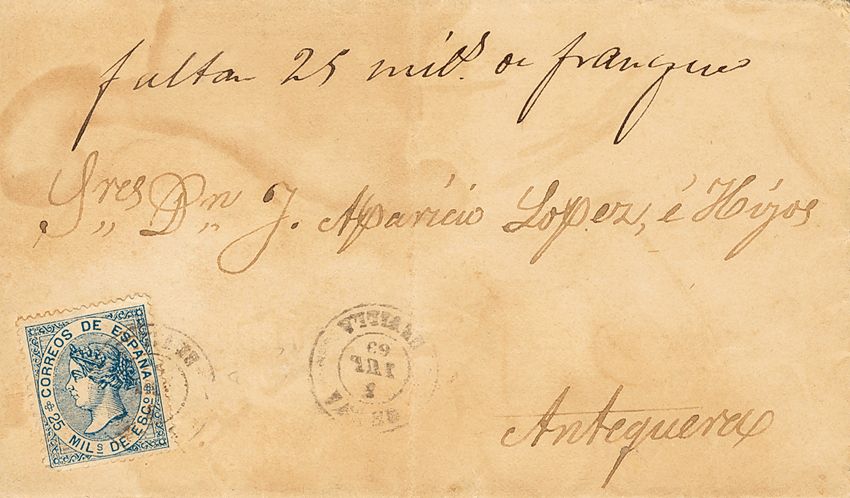 faltan 25 mils. de franqueo
Sres Dn J. Aparicio Lopez, é Hijos
CORREOS DE ESPAÑA
25 MILS DE ESCO
SEVILLA
JUL
69
Antequera